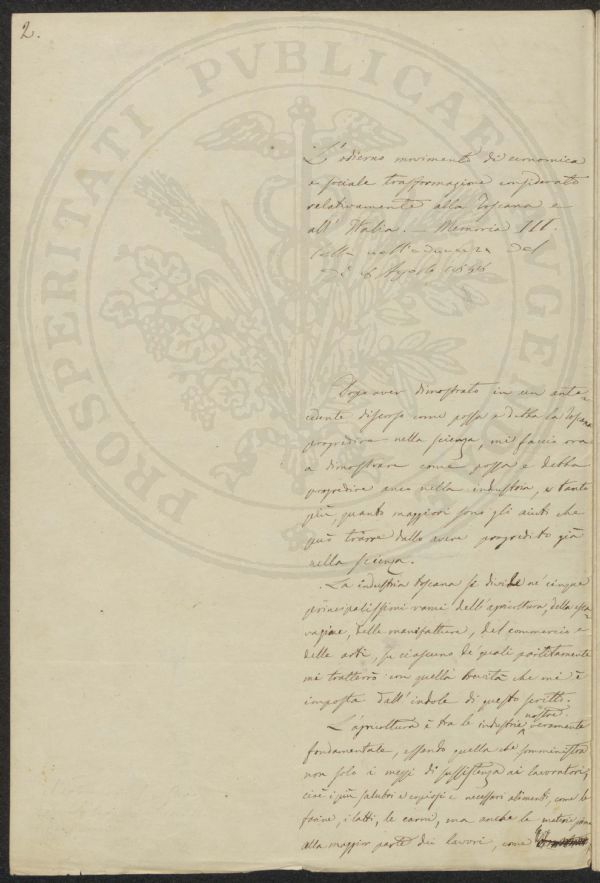 2.
PROSPERITATI PVBLICAE AUGENDAE
L'odierno movimento di economica
e sociale trasformazione considerato
relativamente alla Toscana e
all'Italia. — Memoria III.
Letta nell'adunanza del
dì 6 Agosto 1846
Dopo aver dimostrato in un ante-
cedente discorso come possa e debba la Toscana
progredire nella scienza, mi faccio ora
a dimostrare come possa e debba
progredire anco nella industria, e tanto
più, quanto maggiori sono gli aiuti che
può trarre dallo avere progredito già
nella scienza.
La industria toscana si divide ne' cinque
principalissimi rami dell'agricoltura, della esca-
vazione, delle manifatture, del commercio e
delle arti, su ciascuno de' quali partitamente
mi tratterrò con quella brevità che mi è
imposta dall'indole di questo scritto.
L'agricoltura è tra le industrie nostre veramente
fondamentale, essendo quella che somministra
non solo i mezzi di sussistenza ai lavoratori,
cioè i più salubri e copiosi e necessari alimenti, come le
farine, i latti, le carni, ma anche le materie prime
alla maggior parte dei lavori, come